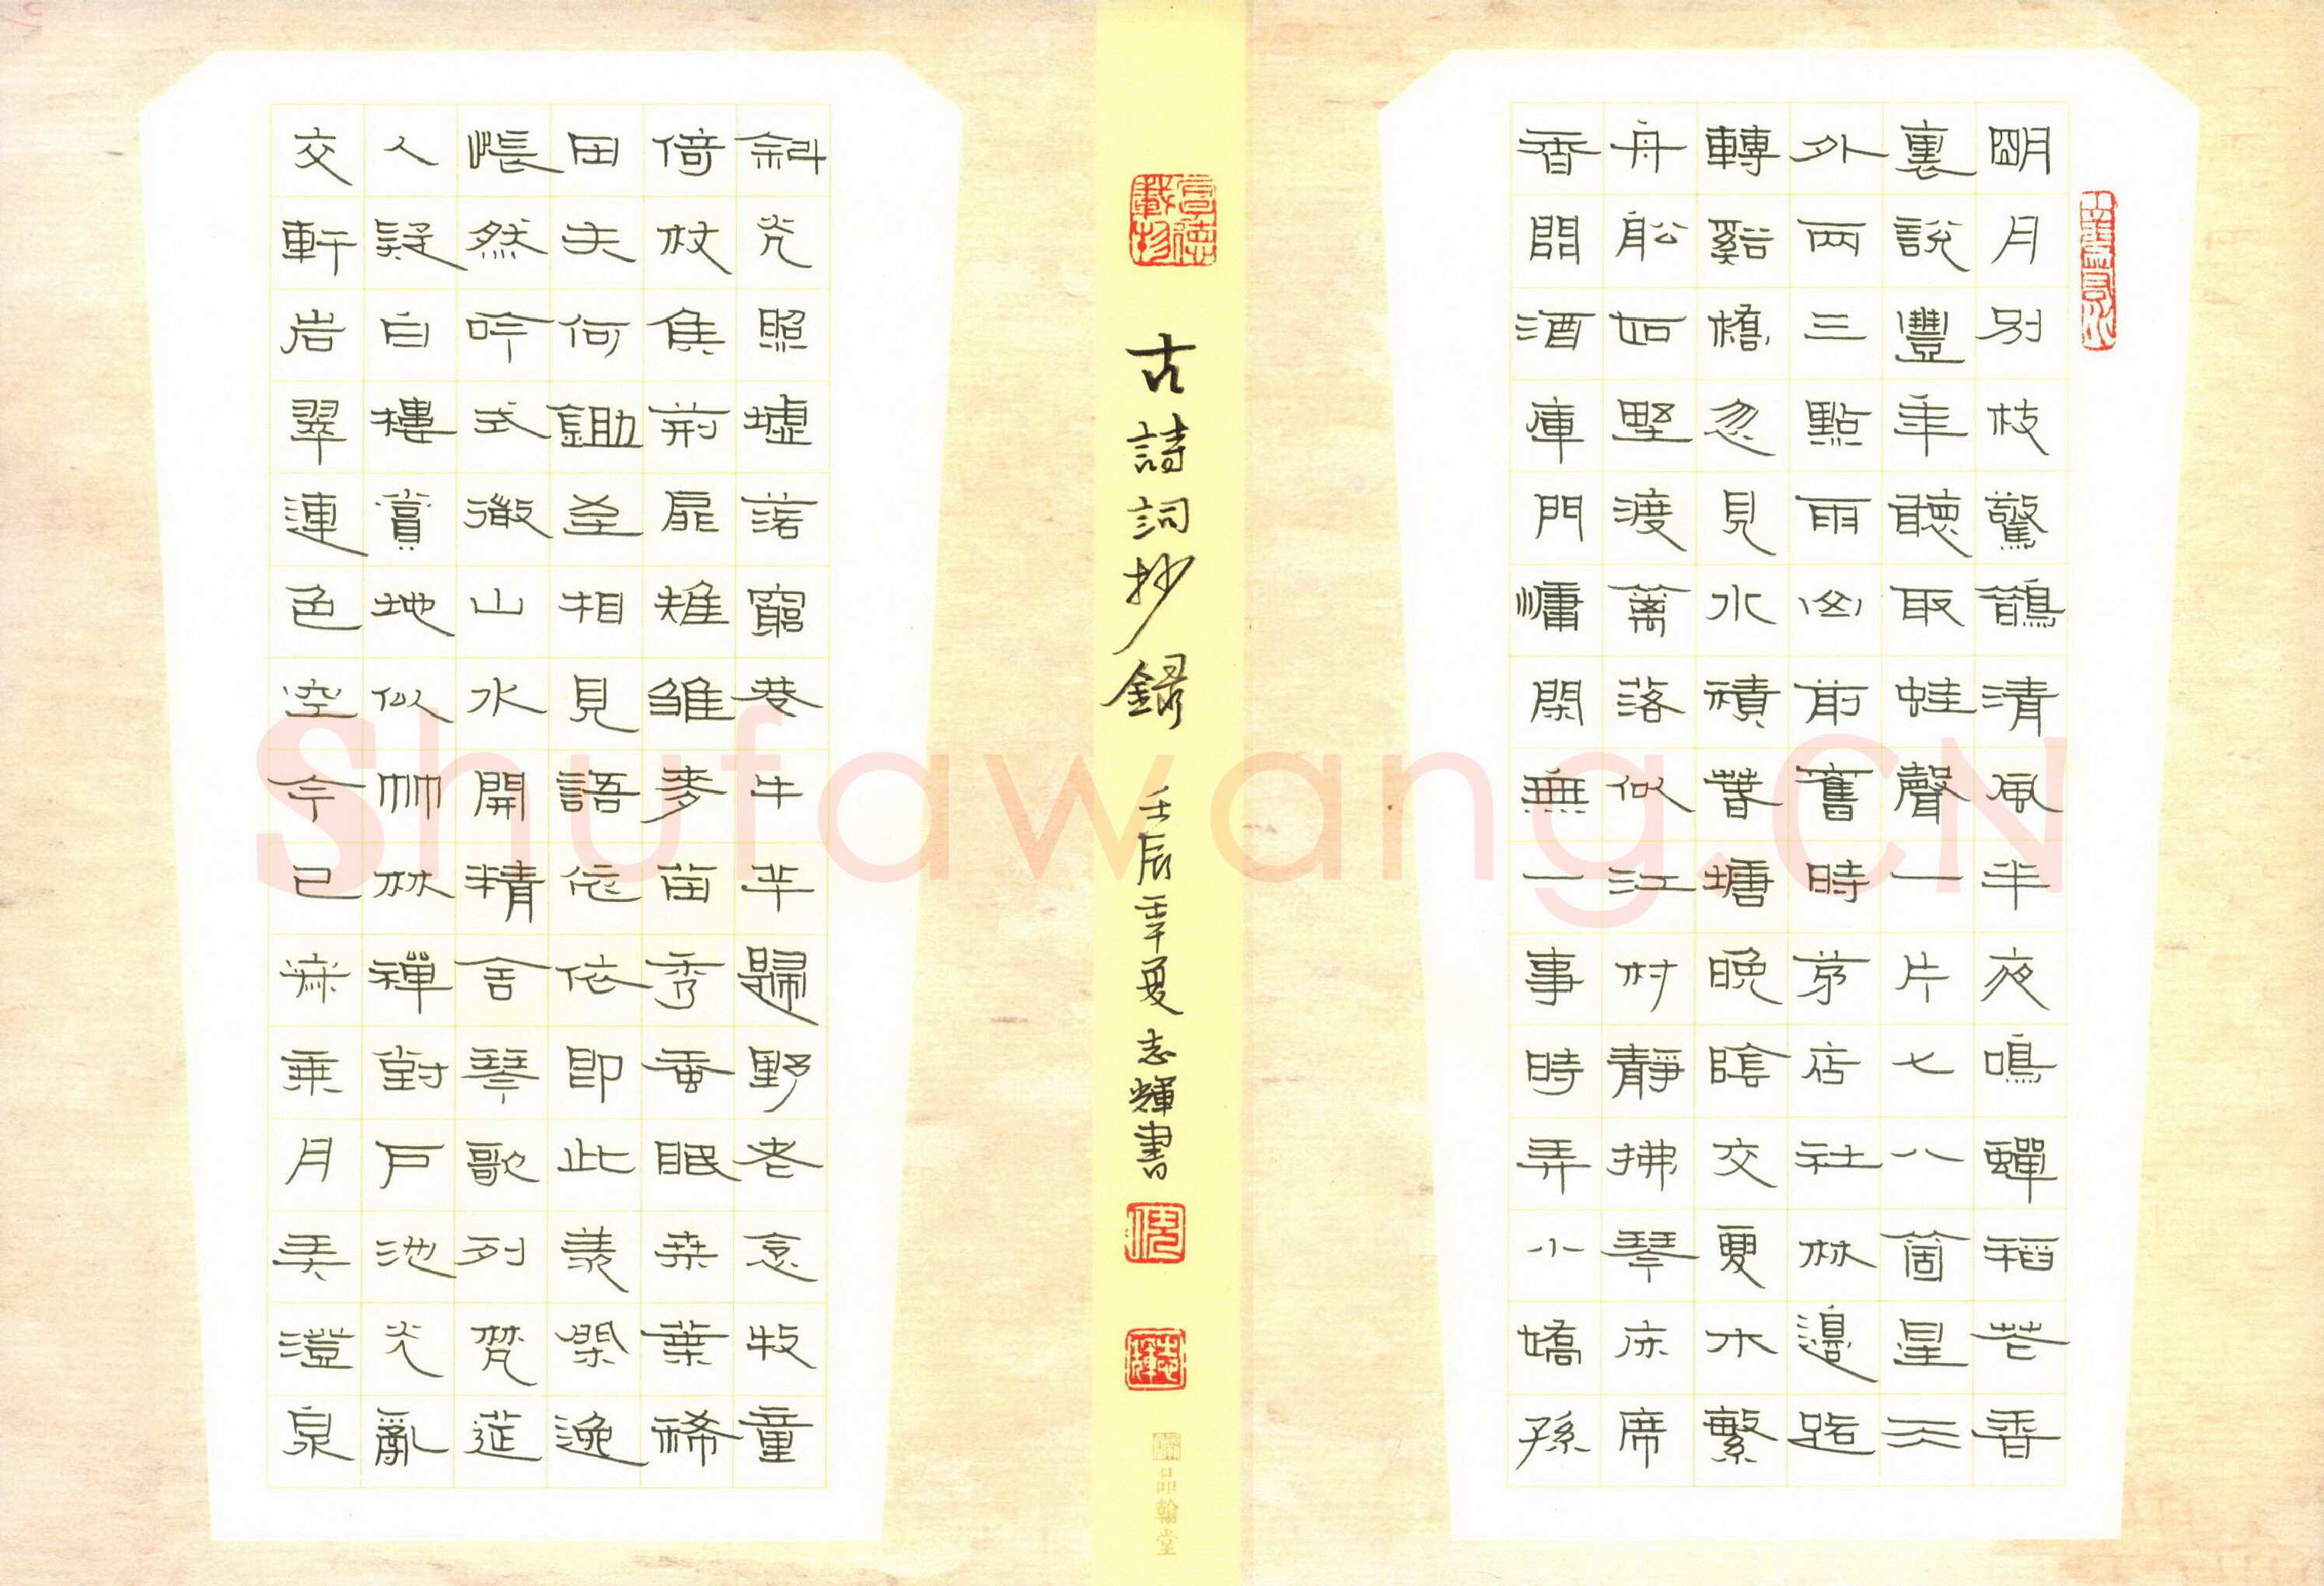 上善若水
明月別枝驚鵲清風半夜鳴蟬稻花香
裏說豐年聽取蛙聲一片七八箇星天
外兩三點雨山前舊時茅店社林邊路
轉谿橋忽見水積春塘晚陰交夏木繁
舟船如野渡籬落似江村靜拂琴床席
香開酒庫門慵閑無一事時弄小嬌孫
厚德載物
古詩詞抄錄
壬辰年夏志輝書
倪
志輝
品翰堂
斜光照墟落窮巷牛羊歸野老念牧童
倚杖候荊扉雉雊麥苗秀蚕眠桑葉稀
田夫何鋤至相見語依依即此羨閑逸
悵然吟式微山水開精舍琴歌列梵筵
人疑白樓賞地似竹林禪對戶池光亂
交軒岩翠連色空今已寂乘月弄澄泉
Shufawang.CN